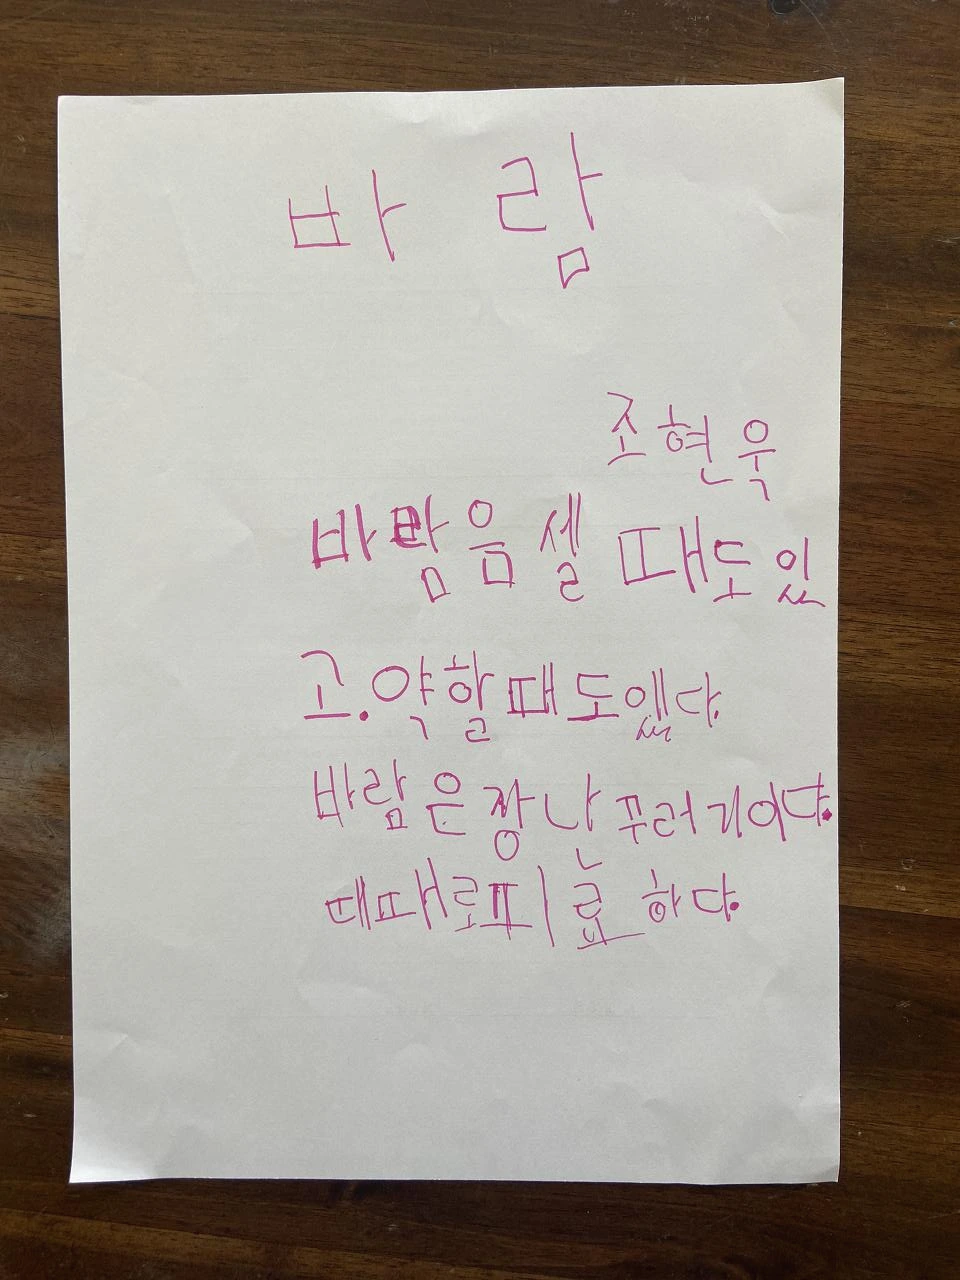 바 람
조현욱
바람음 셀 때도 있
고. 약할 때도 있다
바람은 장난꾸러기이다.
때때로 피료하다.